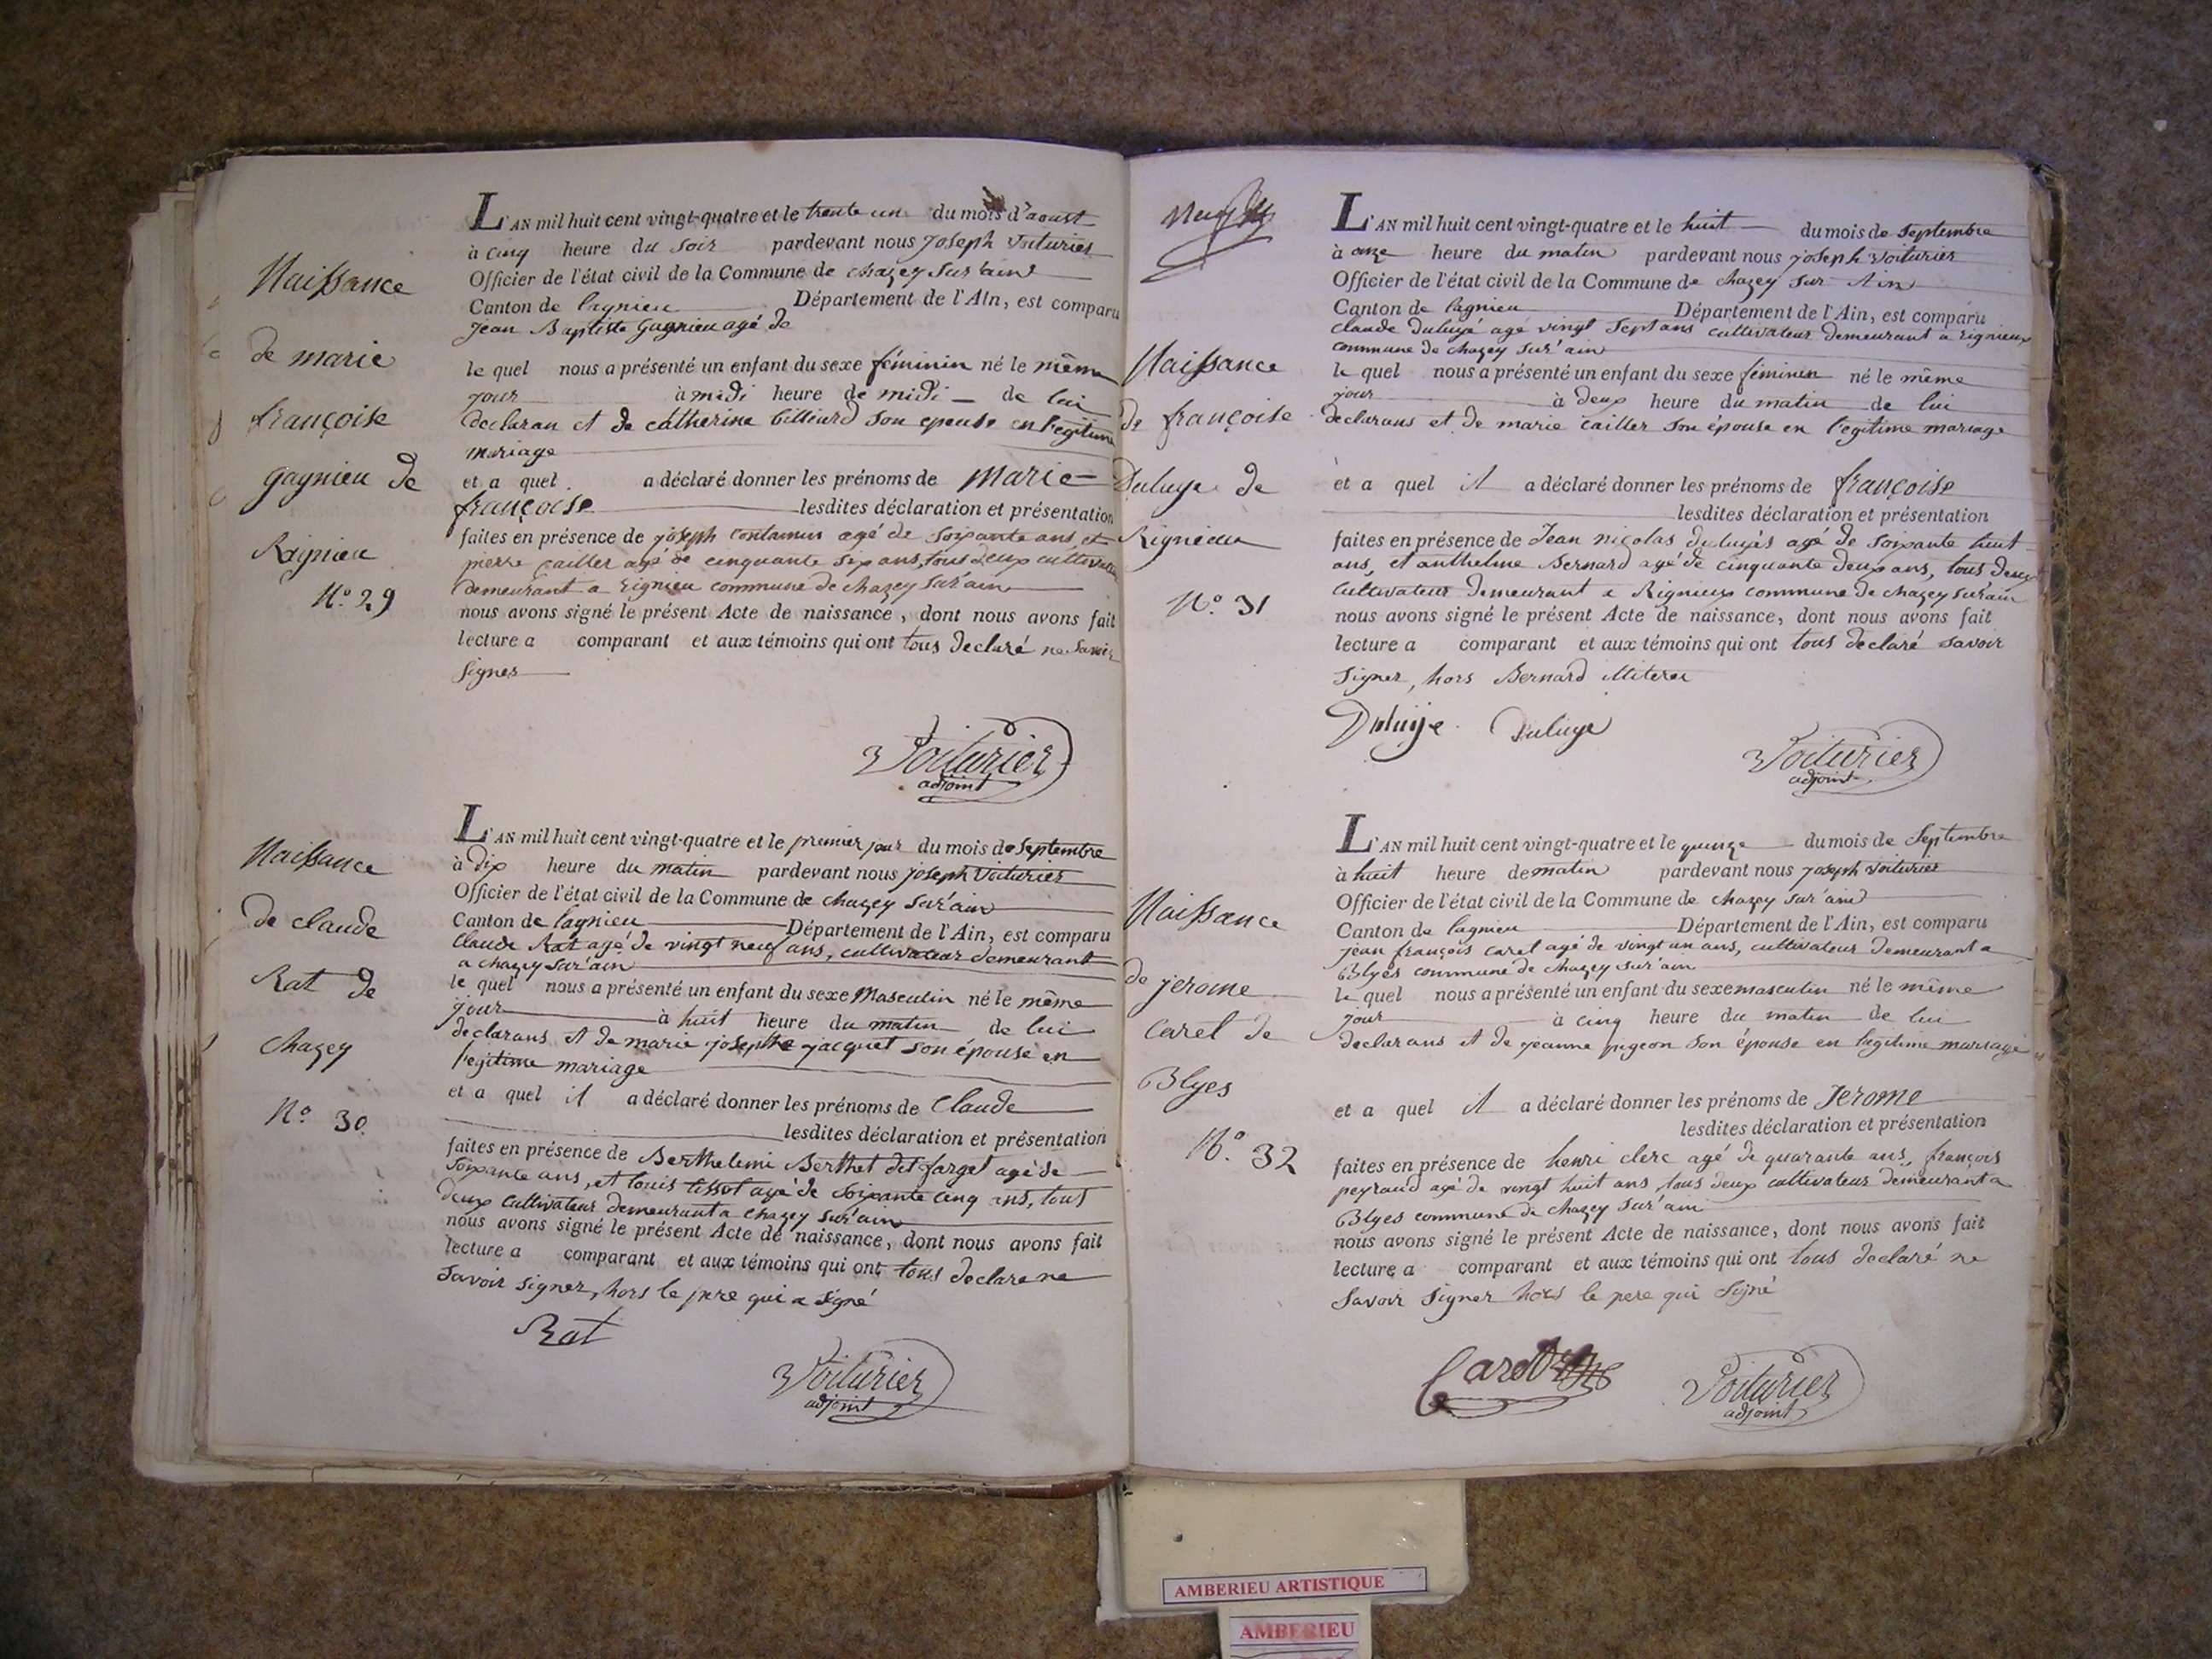 Naissance
de marie
françoise
gagnieu de
Rignieu
N.° 29
L'AN mil huit cent vingt-quatre et le trente un du mois d'aoust
à cinq heure du soir pardevant nous joseph Voiturier
Officier de l'état civil de la Commune de chazey sur'ain
Canton de lagnieu Département de l'Ain, est comparu
jean Baptiste Gagnieu agé de
le quel nous a présenté un enfant du sexe féminin né le même
jour à midi heure de midi de lui
declaran et de catherine billiard son epouse en legitime
mariage
et a quel a déclaré donner les prénoms de Marie
françoise lesdites déclaration et présentation
faites en présence de joseph contamin agé de soixante ans et
pierre cailler agé de cinquante six ans, tous deux cultivateur
demeurant a rignieu commune de chazey sur'ain
nous avons signé le présent Acte de naissance, dont nous avons fait
lecture a comparant et aux témoins qui ont tous declaré ne savoir
signer
Voiturier
adjoint
Naissance
de claude
Rat de
chazey
N.° 30
L'AN mil huit cent vingt-quatre et le premier jour du mois de Septembre
à dix heure du matin pardevant nous joseph Voiturier
Officier de l'état civil de la Commune de chazey sur'ain
Canton de lagnieu Département de l'Ain, est comparu
Claude Rat agé de vingt neuf ans, cultivateur demeurant
a chazey sur'ain
le quel nous a présenté un enfant du sexe Masculin né le même
jour à huit heure du matin de lui
declarans et de marie josephte jacquet son épouse en
legitime mariage
et a quel il a déclaré donner les prénoms de Claude
lesdites déclaration et présentation
faites en présence de Berthelemi Berthet dit farget agé de
soixante ans, et louis tissot agé de soixante cinq ans, tous
deux cultivateur demeurant a chazey sur'ain
nous avons signé le présent Acte de naissance, dont nous avons fait
lecture a comparant et aux témoins qui ont tous declare ne
savoir signer, hors le pere qui a signé
Rat
Voiturier
adjoint
Naissance
de françoise
Duluye de
Rignieu
N.° 31
L'AN mil huit cent vingt-quatre et le huit du mois de Septembre
à onze heure du matin pardevant nous joseph Voiturier
Officier de l'état civil de la Commune de chazey sur Ain
Canton de lagnieu Département de l'Ain, est comparu
claude duluyé agé vingt sept ans cultivateur demeurant a rignieux
commune de chazey sur'ain
le quel nous a présenté un enfant du sexe féminin né le même
jour à deux heure du matin de lui
declarans et de marie cailler son épouse en legitime mariage
et a quel il a déclaré donner les prénoms de françoise
lesdites déclaration et présentation
faites en présence de Jean nicolas duluyés agé de soixante huit
ans, et anthelme Bernard agé de cinquante deux ans, tous deux
cultivateur demeurant a Rignieux commune de chazey sur'ain
nous avons signé le présent Acte de naissance, dont nous avons fait
lecture a comparant et aux témoins qui ont tous declaré savoir
signer, hors Bernard illiteré
Duluye Duluye
Voiturier
adjoint
Naissance
de jerome
Carel de
Blyes
N.° 32
L'AN mil huit cent vingt-quatre et le quinze du mois de Septembre
à huit heure de matin pardevant nous joseph Voiturier
Officier de l'état civil de la Commune de chazey sur'ain
Canton de lagnieu Département de l'Ain, est comparu
jean françois Carel agé de vingt un ans, cultivateur demeurant a
Blyes commune de chazey sur'ain
le quel nous a présenté un enfant du sexe masculin né le même
jour à cinq heure du matin de lui
declarans et de jeanne pigeon son épouse en legitime mariage
et a quel il a déclaré donner les prénoms de Jerome
lesdites déclaration et présentation
faites en présence de henri clerc agé de quarante ans, françois
peyraud agé de vingt huit ans, tous deux cultivateur demeurant a
Blyes commune de chazey sur'ain
nous avons signé le présent Acte de naissance, dont nous avons fait
lecture a comparant et aux témoins qui ont tous declaré ne
savoir signer hors le pere qui signé
Carel
Voiturier
adjoint
AMBERIEU ARTISTIQUE
AMBERIEU